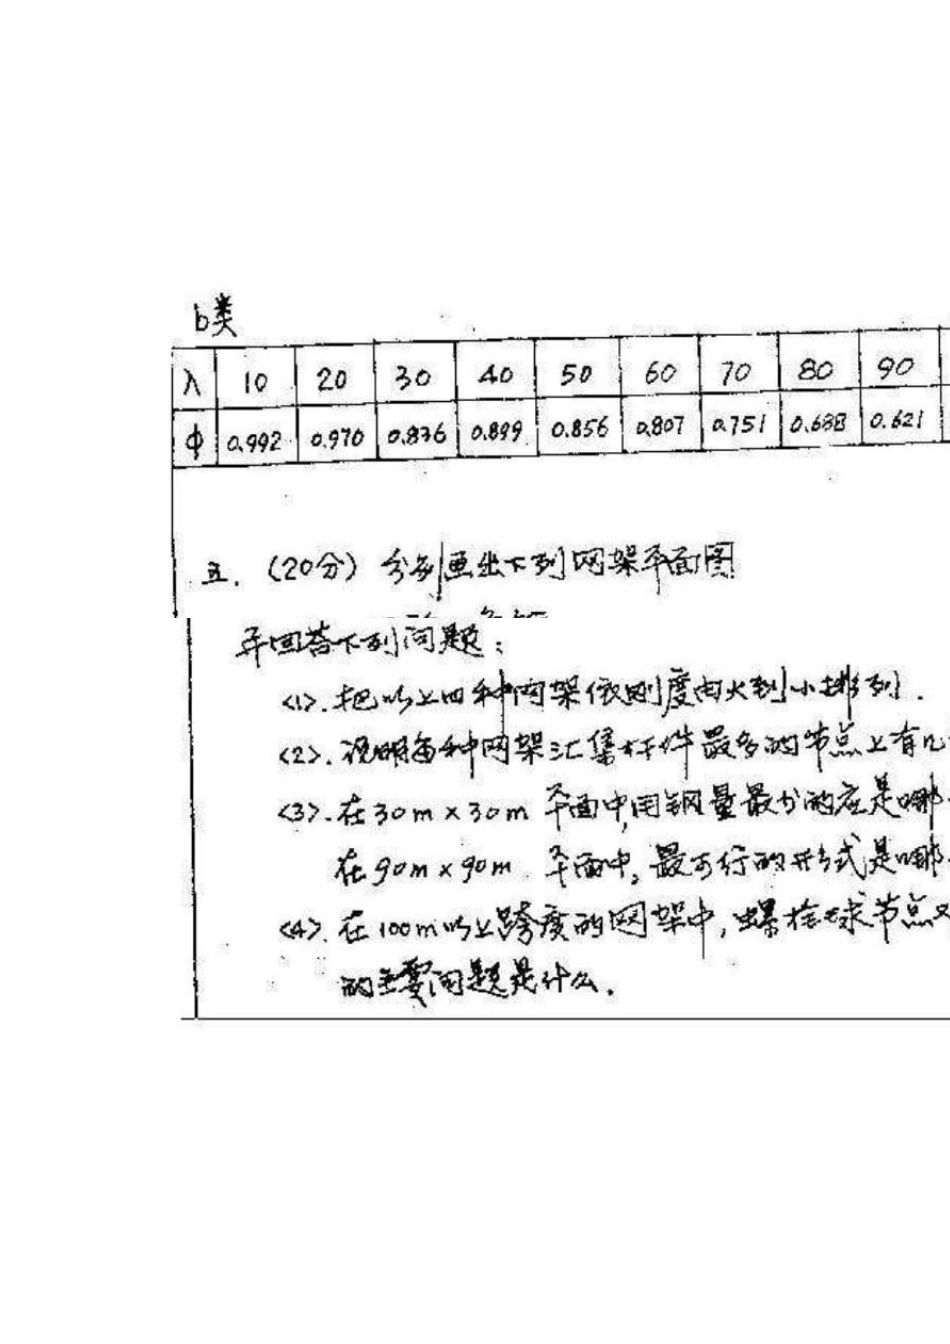 b类
λ 10 20 30 40 50 60 70 80 90
φ 0.992 0.970 0.836 0.899 0.856 0.807 0.751 0.688 0.621
五.(20分)分别画出下列网架平面图
并回答下列问题:
<1>.把以上四种网架依刚度由大到小排列.
<2>.说明每种网架汇集杆件最多的节点上有几
<3>.在30m×30m 平面中,用钢量最少的应是哪
在90m×90m 平面中,最可行的形式是哪
<4>.在100m以上跨度的网架中,螺栓球节点
的主要问题是什么.